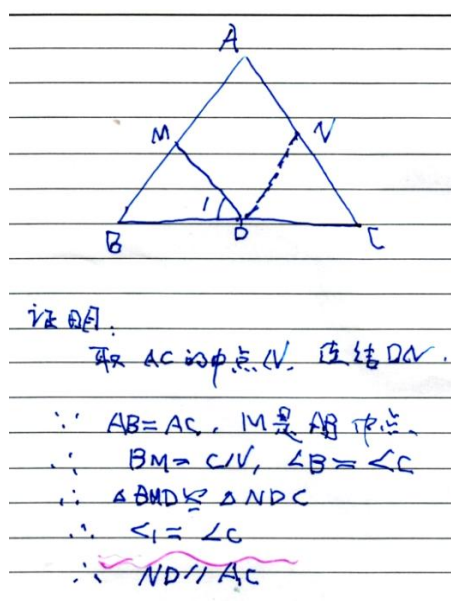 A
M
N
1
B
D
C
证明:
取 AC 的中点 N. 连结 DN.
∵ AB=AC, M是AB中点.
∴ BM=CN, ∠B=∠C
∴ △BMD≌△NDC
∴ ∠1=∠C
∴ ND∥AC